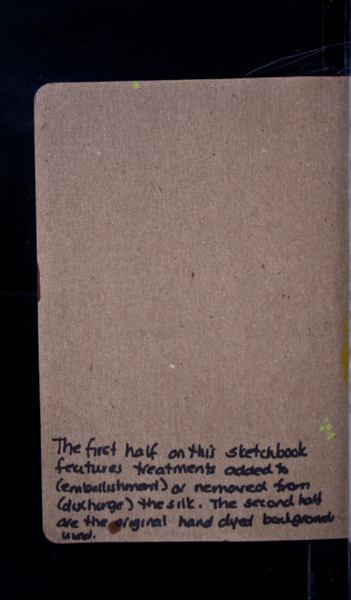 The first half on this sketchbook
features treatments added to
(embellishment) or removed from
(discharge) the silk. The second half
are the original hand dyed background
used.